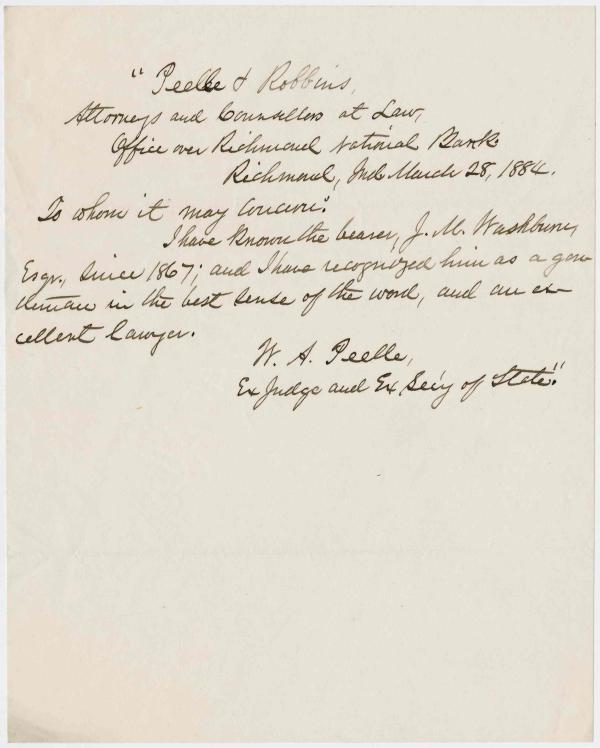 " Peelle & Robbins,
Attorneys and Counsellors at Law,
Office over Richmond National Bank
Richmond, Ind. March 28, 1884.
To whom it may concern:
I have known the bearer, J. M. Washburn,
Esqr., since 1867; and I have recognized him as a gen
tleman in the best sense of the word, and an ex-
cellent lawyer.
W. A. Peelle,
Ex Judge and Ex Sec'y of State."